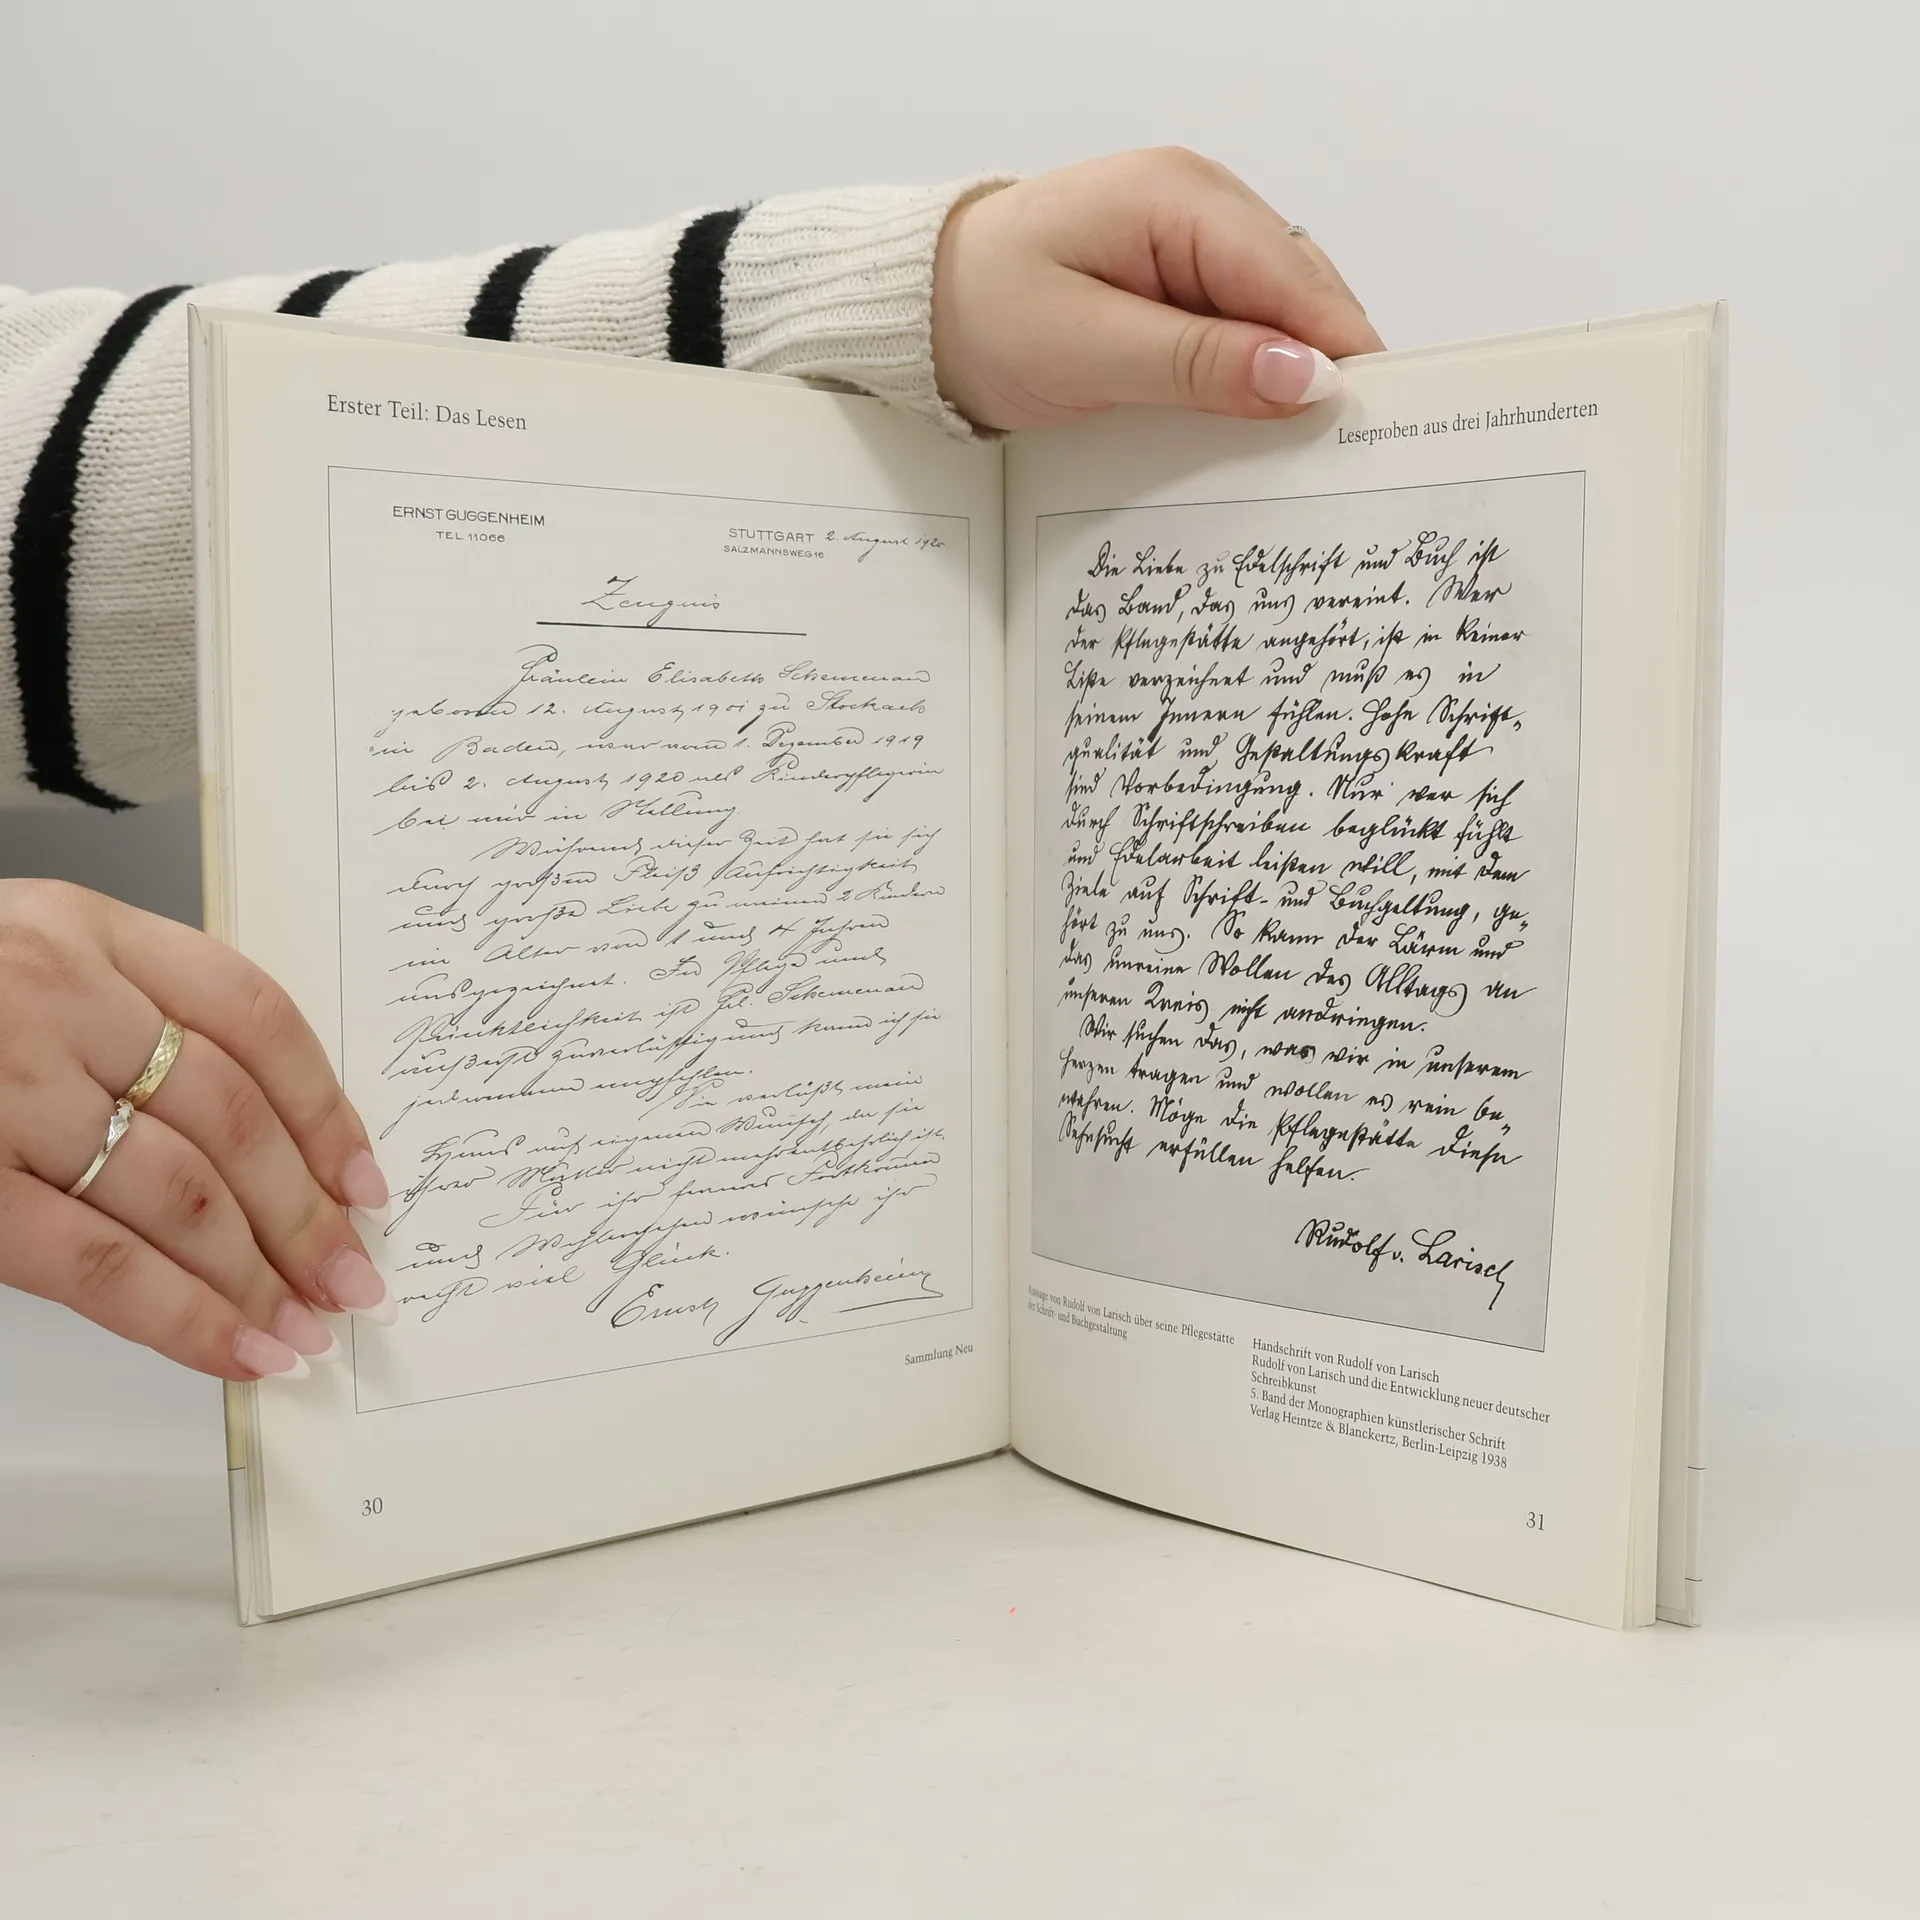 Erster Teil: Das Lesen
ERNST GUGGENHEIM
TEL. 11066
STUTTGART 2. August 1920
SALZMANNSWEG 16
Zeugnis
Fräulein Elisabeth Schemenau
geboren 12. August 1901 zu Stockach
in Baden, war vom 1. Dezember 1919
bis 2. August 1920 als Kinderpflegerin
bei mir in Stellung.
Während dieser Zeit hat sie sich
durch großen Fleiß, Aufrichtigkeit
und große Liebe zu meinen 2 Kindern
im Alter von 1 und 4 Jahren
ausgezeichnet. In Pflege und
Pünktlichkeit ist Frl. Schemenau
äußerst zuverlässig und kann ich sie
jedermann empfehlen.
Sie verläßt mein
Haus auf eigenen Wunsch, da sie
ihrer Mutter nicht mehr entbehrlich ist.
Für ihr ferneres Fortkommen
und Wohlergehen wünsche ihr
recht viel Glück.
Ernst Guggenheim
Sammlung Neu
30
Leseproben aus drei Jahrhunderten
Die Liebe zu Edelschrift und Buch ist
das Band, das uns vereint. Wer
der Pflegestätte angehört, ist in keiner
Liste verzeichnet und muß es in
seinem Innern fühlen. Hohe Schrift-
qualität und Gestaltungskraft
sind Vorbedingung. Nur wer sich
durch Schriftschreiben beglückt fühlt
und Edelarbeit leisten will, mit dem
Ziele auf Schrift- und Buchgeltung, ge-
hört zu uns. So kann der Lärm und
das unreine Wollen des Alltags an
unseren Kreis nicht andringen.
Wir suchen das, was wir in unserem
Herzen tragen und wollen es rein be-
wahren. Möge die Pflegestätte diese
Sehnsucht erfüllen helfen.
Rudolf v. Larisch
Aussage von Rudolf von Larisch über seine Pflegestätte
der Schrift- und Buchgestaltung
Handschrift von Rudolf von Larisch
Rudolf von Larisch und die Entwicklung neuer deutscher
Schreibkunst
5. Band der Monographien künstlerischer Schrift
Verlag Heintze & Blanckertz, Berlin-Leipzig 1938
31